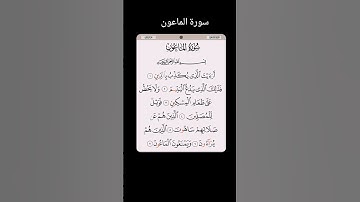 سورة الماعون
سُورَةُ الْمَاعُونِ
بِسْمِ اللَّهِ الرَّحْمَٰنِ الرَّحِيمِ
أَرَءَيْتَ الَّذِى يُكَذِّبُ بِالدِّينِ ١
فَذَٰلِكَ الَّذِى يَدُعُّ الْيَتِيمَ ٢ وَلَا يَحُضُّ
عَلَىٰ طَعَامِ الْمِسْكِينِ ٣ فَوَيْلٌ
لِّلْمُصَلِّينَ ٤ الَّذِينَ هُمْ عَن
صَلَاتِهِمْ سَاهُونَ ٥ الَّذِينَ هُمْ
يُرَآءُونَ ٦ وَيَمْنَعُونَ الْمَاعُونَ ٧